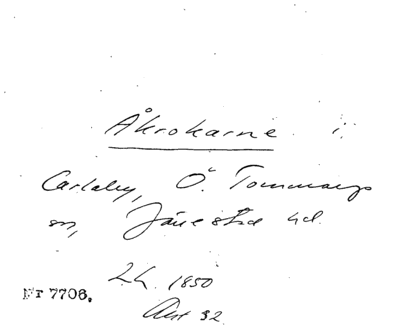 Åkrokarne i
Carlsby, Ö. Tommarps
sn, Järrestad hd.
L.L. 1850
Akt 32
Nr 7706.